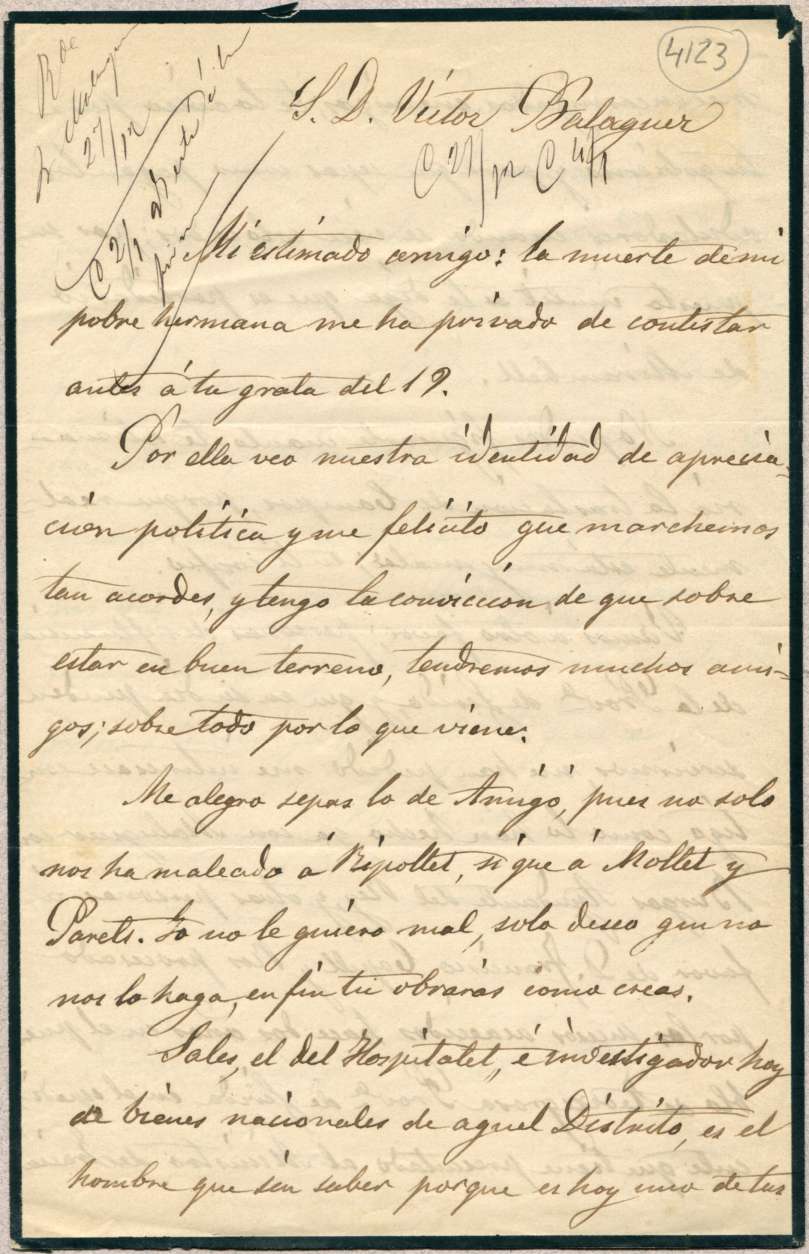 4123
27/12
S. D. Victor Balaguer
C 27/12 C 4/1
C 2/1
Mi estimado amigo: la muerte de mi
pobre hermana me ha privado de contestar
antes á tu grata del 19.
Por ella veo nuestra identidad de aprecia-
ción política y me felicito que marchemos
tan acordes, y tengo la convicción de que sobre
estar en buen terreno, tendremos muchos ami-
gos; sobre todo por lo que viene.
Me alegro sepas lo de Amigó, pues no solo
nos ha maleado á Ripollet, sí que á Mollet y
Parets. Yo no le quiero mal, solo deseo que no
nos lo haga, en fin tu obrarás como creas.
Sales, el del Hospitalet, é investigador hoy
de bienes nacionales de aquel Distrito, es el
hombre que sin saber porque es hoy uno de tus